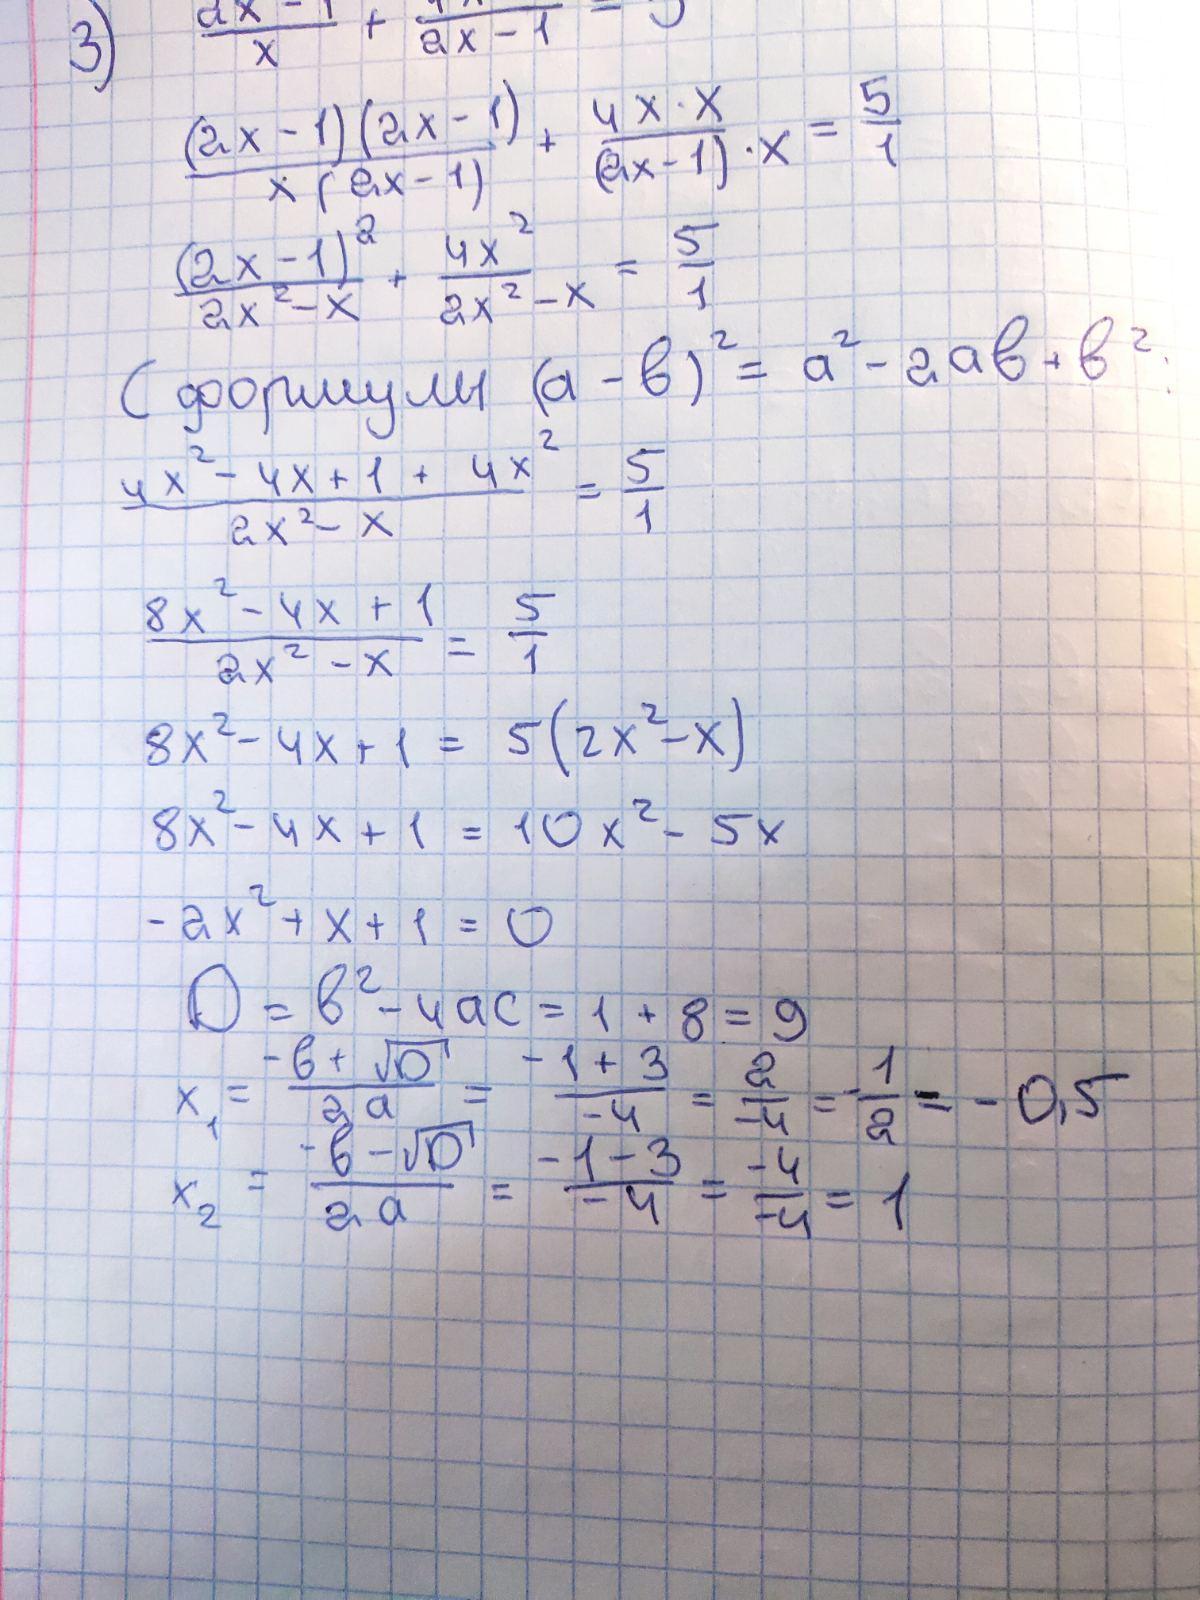 3) (2x-1)/x + 4x/(2x-1) = 5
(2x-1)(2x-1)/x(2x-1) + 4x·x/(2x-1)·x = 5/1
(2x-1)²/2x²-x + 4x²/2x²-x = 5/1
(формулы (a-в)² = a²-2aв+в²:
4x²-4x+1+4x²/2x²-x = 5/1
8x²-4x+1/2x²-x = 5/1
8x²-4x+1 = 5(2x²-x)
8x²-4x+1 = 10x²-5x
-2x²+x+1=0
D = в²-4ac = 1+8 = 9
x₁ = -в+√D/2a = -1+3/-4 = 2/-4 = -1/2 = -0,5
x₂ = -в-√D/2a = -1-3/-4 = -4/-4 = 1